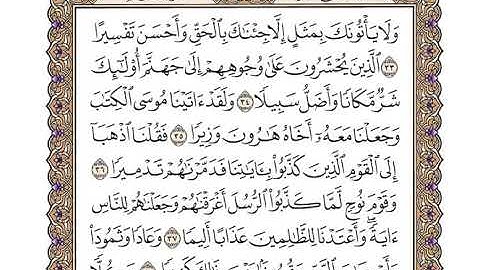 وَلَا يَأْتُونَكَ بِمَثَلٍ إِلَّا جِئْنَٰكَ بِٱلْحَقِّ وَأَحْسَنَ تَفْسِيرًا
٣٣ ٱلَّذِينَ يُحْشَرُونَ عَلَىٰ وُجُوهِهِمْ إِلَىٰ جَهَنَّمَ أُو۟لَٰٓئِكَ
شَرٌّ مَّكَانًا وَأَضَلُّ سَبِيلًا ٣٤ وَلَقَدْ ءَاتَيْنَا مُوسَى ٱلْكِتَٰبَ
وَجَعَلْنَا مَعَهُۥٓ أَخَاهُ هَٰرُونَ وَزِيرًا ٣٥ فَقُلْنَا ٱذْهَبَآ
إِلَى ٱلْقَوْمِ ٱلَّذِينَ كَذَّبُوا۟ بِـَٔايَٰتِنَا فَدَمَّرْنَٰهُمْ تَدْمِيرًا ٣٦
وَقَوْمَ نُوحٍ لَّمَّا كَذَّبُوا۟ ٱلرُّسُلَ أَغْرَقْنَٰهُمْ وَجَعَلْنَٰهُمْ لِلنَّاسِ
ءَايَةً ۖ وَأَعْتَدْنَا لِلظَّٰلِمِينَ عَذَابًا أَلِيمًا ٣٧ وَعَادًا وَثَمُودَا۟